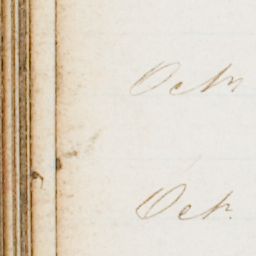 Octr
Oct.